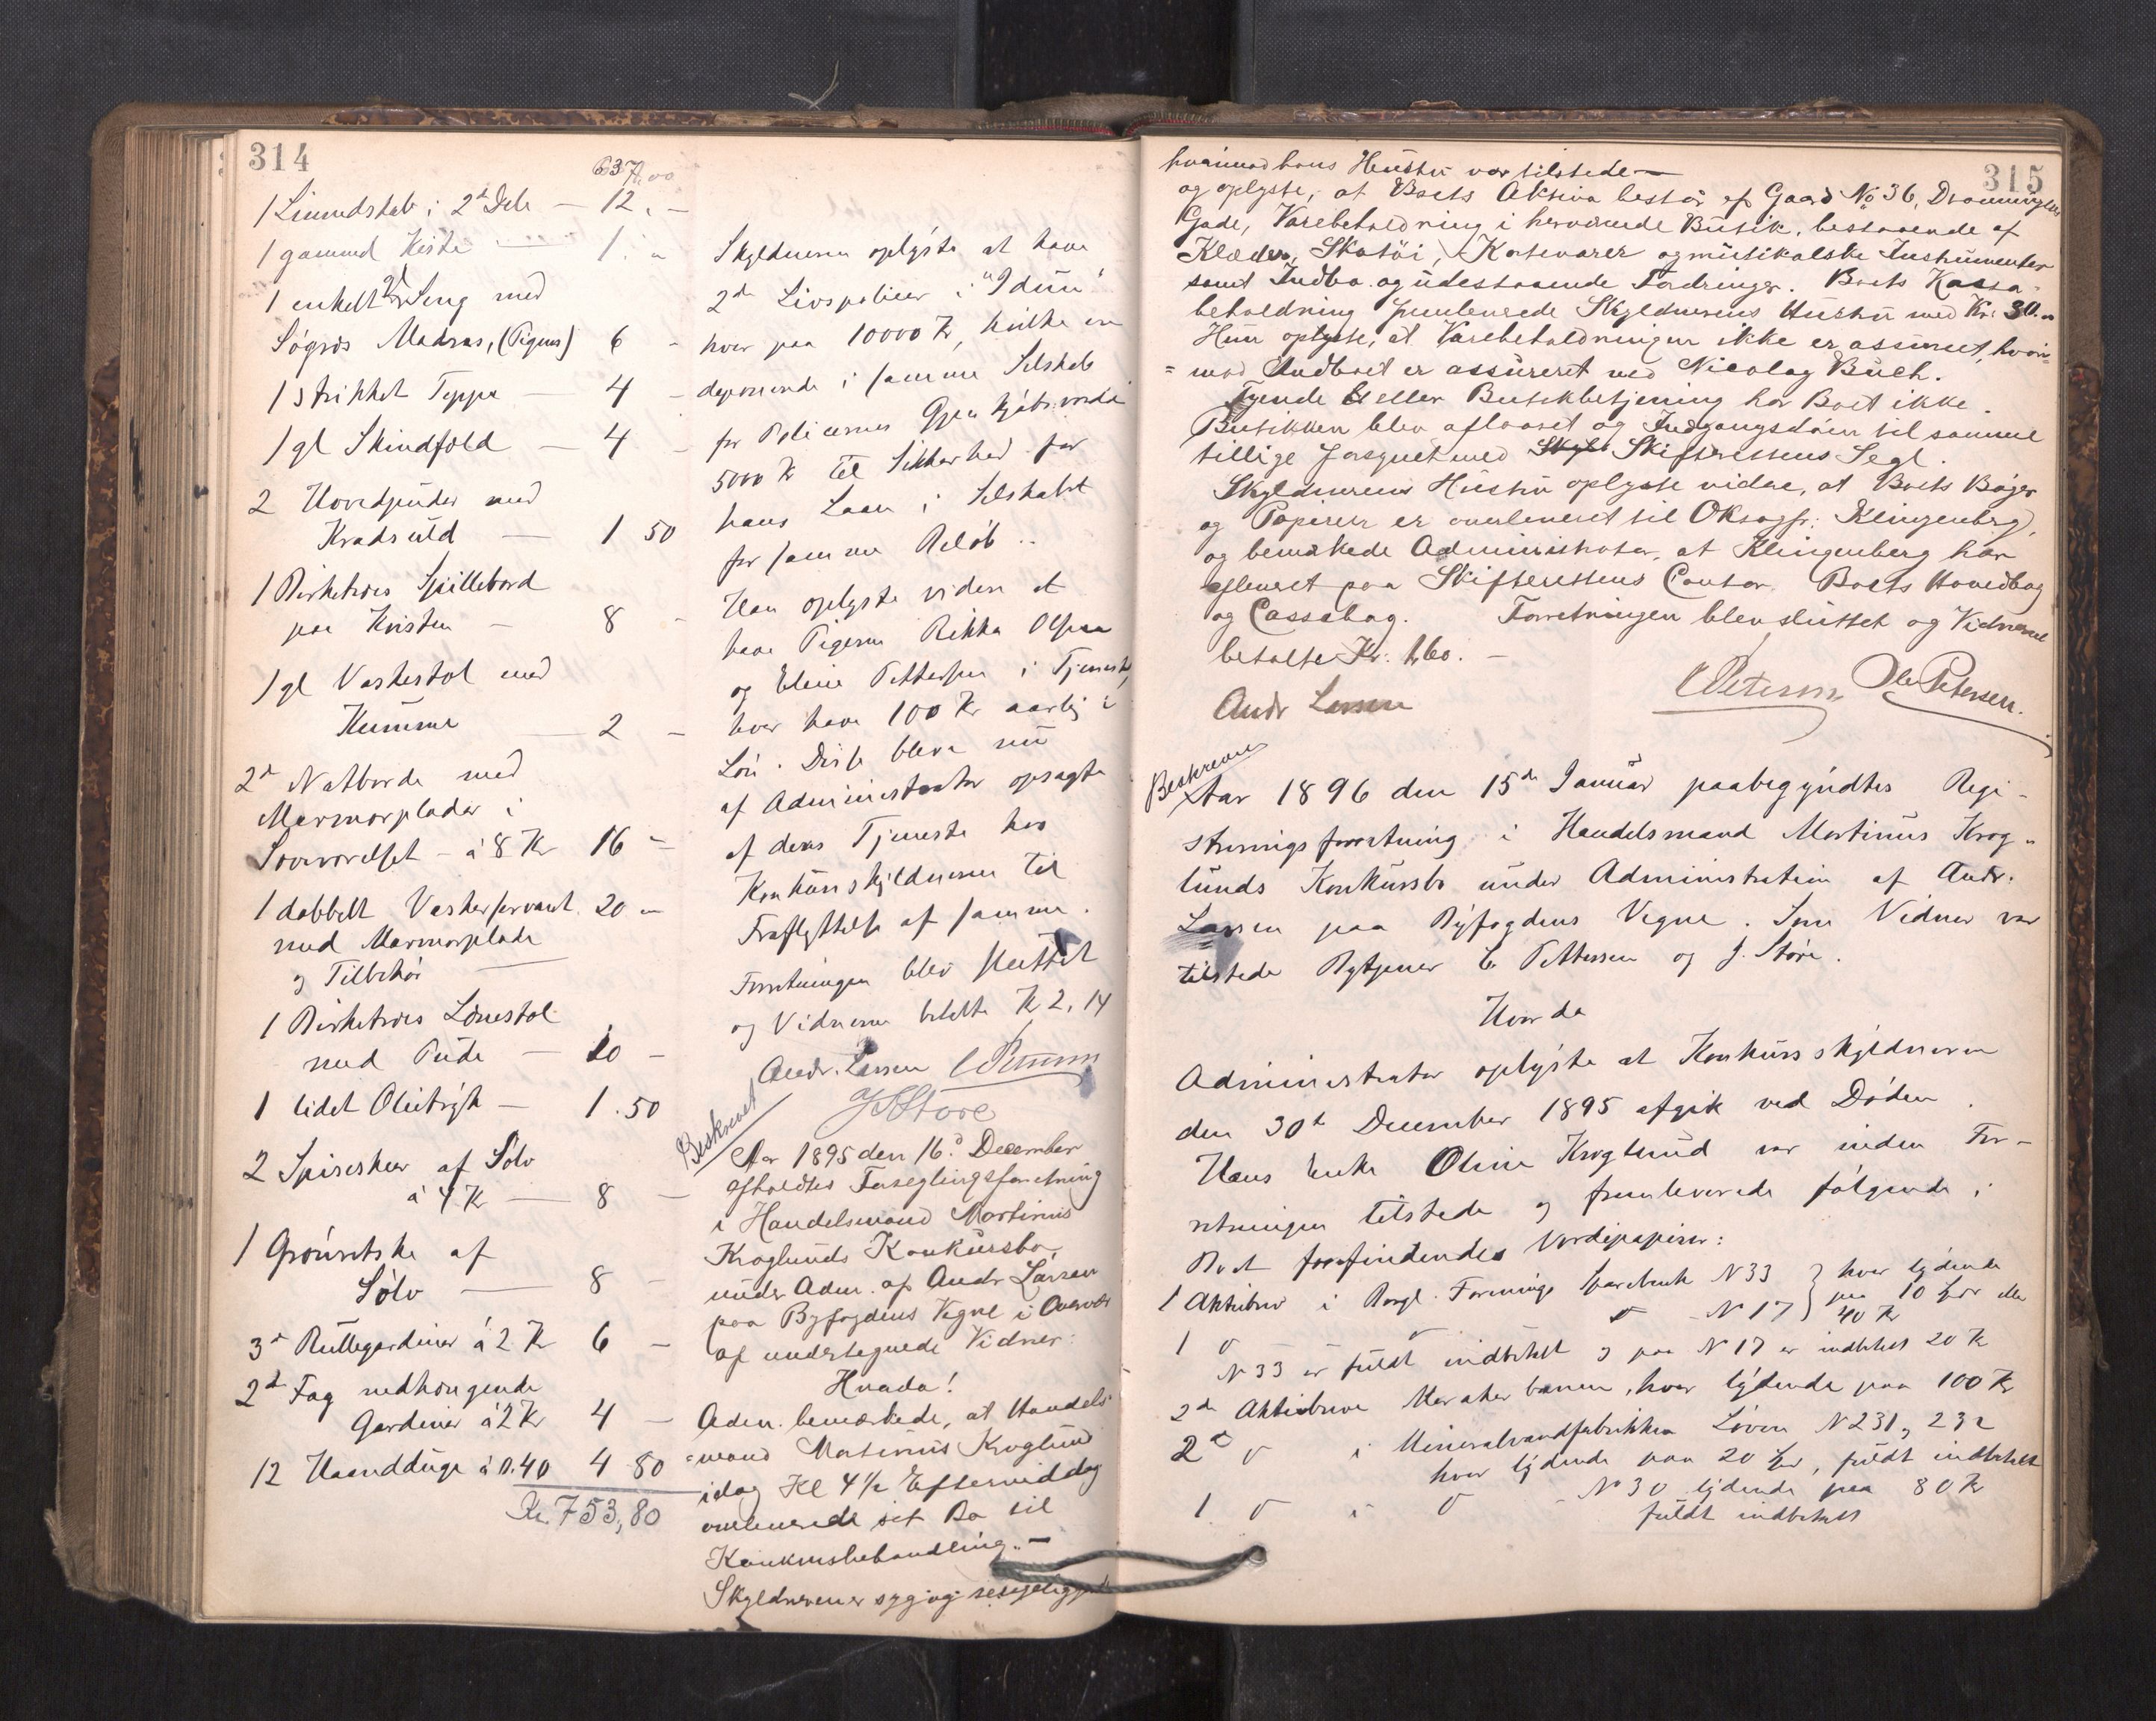 314
637,00
1 Linnedskab i 2d Dele — 12. -
1 gammel Kiste — 1. "
1 enkelt Seng med
Søgræs Madras, (Pigens) 6 -
1 strikket Teppe — 4 -
1 gl Skindfeld — 4 -
2 Hovedpuder med
Kradsuld — 1 50
1 Birketræs Spillebord
paa Kvisten — 8 -
1 gl Vaskestol med
Kumme — 2 -
2d Natborde med
Marmorplader i
Soveværelset - à 8 Kr 16 -
1 dobbelt Vaskeservant 20 -
med Marmorplade
og Tilbehør
1 Birketræs Lænestol
med Pude — 10 -
1 lidet Olietryk — 1.50
2 Spiseskeer af Sølv
à 4 Kr — 8 -
1 Grødske af
Sølv — 8 -
3d Rullegardiner à 2 Kr 6 -
2d Fag nedhængende
Gardiner à 2 Kr 4 -
12 Haandduge à 0.40 4 80
Kr. 753,80
Skyldneren oplyste at have
2de Livspolicer i "Idun"
hver paa 10000 Kr, hvilke er
deponerede i samme Selskab
for Policernes Gjenkjøbsværdi
5000 Kr til Sikkerhed for
hans Laan i Selskabet
for samme Beløb ..
Han oplyste videre at
have Pigerne Rikka Olsen
og Eline Pettersen i Tjeneste,
hver have 100 Kr aarlig i
Løn. Disse bleve nu
af Administrator opsagte
af deres Tjeneste hos
Konkursskyldneren til
Fraflyttelse af samme.
Forretningen blev sluttet
og Vidnerne betalte Kr 2,14
Andr. Larsen C Petersen
J Støre
Beskrevet
Aar 1895 den 16d December
afholdtes Forseglingsforretning
i Handelsmand Martinus
Kroglunds Konkursbo,
under Adm. af Andr Larsen
paa Byfogdens Vegne i Overvær
af undertegnede Vidner:
Hvada!
Adm. bemærkede, at Handels
=mand Martinus Kroglund
idag Kl 4 1/2 Eftermiddag
overleverede sit Bo til
Konkursbehandling. —
Skyldneren er syg og sengeliggende
315
hvorimod hans Hustru var tilstede —
og oplyste, at Boets Aktiva bestaar af Gaard No 36, Dronningens
Gade, Varebeholdning i herværende Butik, bestaaende af
Klæder, Skotøi, Kortevarer og musikalske Instrumenter
samt Indbo og udestaaende Fordringer. Boets Kassa=
beholdning fremleverede Skyldnerens Hustru med Kr. 30."
Hun oplyste, at Varebeholdningen ikke er assureret, hvori=
= mod Indboet er assureret ved Nicolay Buch.
Tyende eller Butikbetjening har Boet ikke.
Butikken blev aflaaset og Indgangsdøren til samme
tillige forsynet med Skyl Skifterettens Segl.
Skyldnerens Hustru oplyste videre, at Boets Bøger
og Papirer er overleveret til Oksagfr. Klingenberg,
og bemærkede Administrator, at Klingenberg har
afleveret paa Skifterettens Contor Boets Hovedbog
og Cassabog. Forretningen blev sluttet og Vidnerne
betalte Kr: 1,60. —
Andr Larsen C Petersen Ole Petersen.
Beskrevet
Aar 1896 den 15de Januar paabegyndtes Regi-
streringsforretning i Handelsmand Martinus Krog-
lunds Konkursbo under Administration af Andr.
Larsen paa Byfogdens Vegne. Som Vidner var
tilstede Bytjener C. Pettersen og J. Støre.
Hvorda
Administrator oplyste at Konkursskyldneren
den 30te December 1895 afgik ved Døden.
Hans Enke Oline Kroglund var under For-
retningen tilstede og fremleverede følgende i
Boet forefindendes Værdipapirer:
1 Aktiebrev i Borgl. Forenings Sparebank N 33 } hver lydende
1 " " N 17 } paa 10 Spdr eller 40 Kr
N 33 er fuldt indbetalt og paa N 17 er indbetalt 20 Kr
2de Aktiebreve Merakerbanen, hver lydende paa 100 Kr
2d " i Mineralvandfabrikken Løven N 231 og 232
hver lydende paa 20 Spdr, fuldt indbetalt
1 " i " N 30 lydende paa 80 Kr
fuldt indbetalt